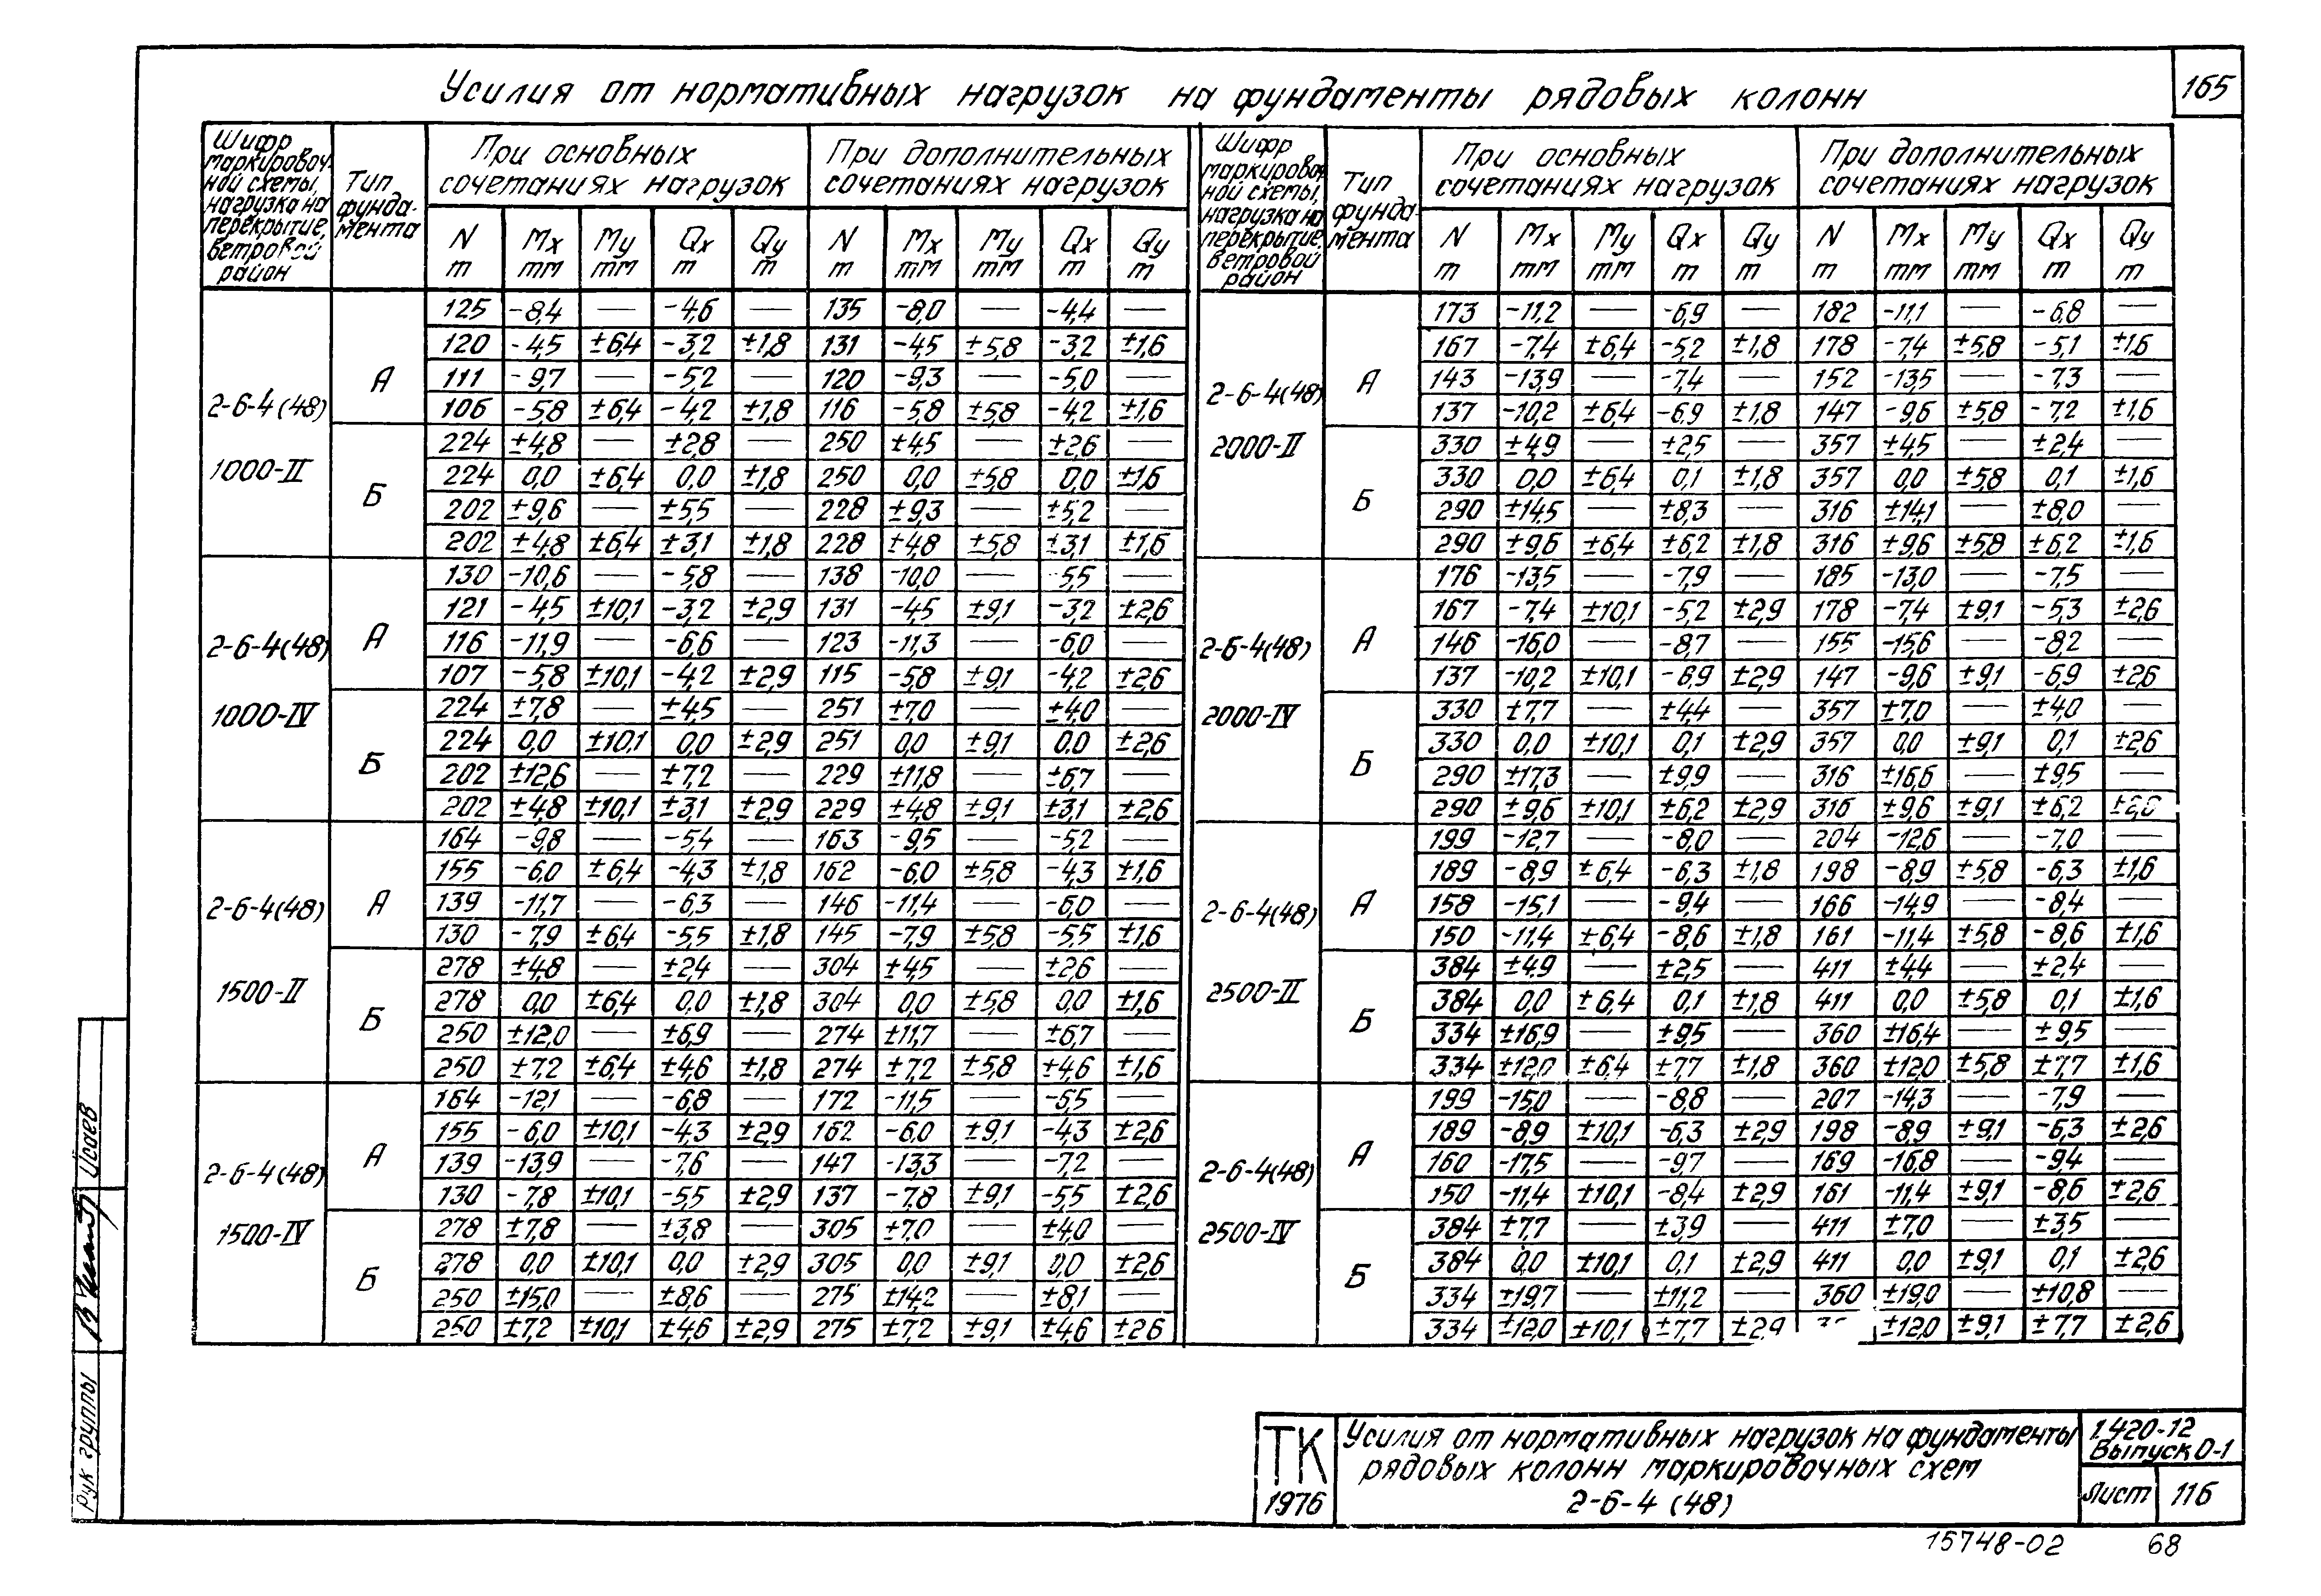 165
Усилия от нормативных нагрузок на фундаменты рядовых колонн
Шифр маркировоч-ной схемы, нагрузка на перекрытие, ветровой район | Тип фунда-мента | При основных сочетаниях нагрузок | При дополнительных сочетаниях нагрузок
N т | Mx тм | My тм | Qx т | Qy т | N т | Mx тм | My тм | Qx т | Qy т
2-6-4(48) 1000-II
А
125 -8,4 — -4,6 — 135 -8,0 — -4,4 —
120 -4,5 ±6,4 -3,2 ±1,8 131 -4,5 ±5,8 -3,2 ±1,6
111 -9,7 — -5,2 — 120 -9,3 — -5,0 —
106 -5,8 ±6,4 -4,2 ±1,8 116 -5,8 ±5,8 -4,2 ±1,6
Б
224 ±4,8 — ±2,8 — 250 ±4,5 — ±2,6 —
224 0,0 ±6,4 0,0 ±1,8 250 0,0 ±5,8 0,0 ±1,6
202 ±9,6 — ±5,5 — 228 ±9,3 — ±5,2 —
202 ±4,8 ±6,4 ±3,1 ±1,8 228 ±4,8 ±5,8 ±3,1 ±1,6
2-6-4(48) 1000-IV
А
130 -10,6 — -5,8 — 138 -10,0 — -5,5 —
121 -4,5 ±10,1 -3,2 ±2,9 131 -4,5 ±9,1 -3,2 ±2,6
116 -11,9 — -6,6 — 123 -11,3 — -6,0 —
107 -5,8 ±10,1 -4,2 ±2,9 115 -5,8 ±9,1 -4,2 ±2,6
Б
224 ±7,8 — ±4,5 — 251 ±7,0 — ±4,0 —
224 0,0 ±10,1 0,0 ±2,9 251 0,0 ±9,1 0,0 ±2,6
202 ±12,6 — ±7,2 — 229 ±11,8 — ±6,7 —
202 ±4,8 ±10,1 ±3,1 ±2,9 229 ±4,8 ±9,1 ±3,1 ±2,6
2-6-4(48) 1500-II
А
164 -9,8 — -5,4 — 163 -9,5 — -5,2 —
155 -6,0 ±6,4 -4,3 ±1,8 162 -6,0 ±5,8 -4,3 ±1,6
139 -11,7 — -6,3 — 146 -11,4 — -6,0 —
130 -7,9 ±6,4 -5,5 ±1,8 145 -7,9 ±5,8 -5,5 ±1,6
Б
278 ±4,8 — ±2,4 — 304 ±4,5 — ±2,6 —
278 0,0 ±6,4 0,0 ±1,8 304 0,0 ±5,8 0,0 ±1,6
250 ±12,0 — ±6,9 — 274 ±11,7 — ±6,7 —
250 ±7,2 ±6,4 ±4,6 ±1,8 274 ±7,2 ±5,8 ±4,6 ±1,6
2-6-4(48) 1500-IV
А
164 -12,1 — -6,8 — 172 -11,5 — -5,5 —
155 -6,0 ±10,1 -4,3 ±2,9 162 -6,0 ±9,1 -4,3 ±2,6
139 -13,9 — -7,6 — 147 -13,3 — -7,2 —
130 -7,8 ±10,1 -5,5 ±2,9 137 -7,8 ±9,1 -5,5 ±2,6
Б
278 ±7,8 — ±3,8 — 305 ±7,0 — ±4,0 —
278 0,0 ±10,1 0,0 ±2,9 305 0,0 ±9,1 0,0 ±2,6
250 ±15,0 — ±8,6 — 275 ±14,2 — ±8,1 —
250 ±7,2 ±10,1 ±4,6 ±2,9 275 ±7,2 ±9,1 ±4,6 ±2,6
Шифр маркировоч-ной схемы, нагрузка на перекрытие, ветровой район | Тип фунда-мента | При основных сочетаниях нагрузок | При дополнительных сочетаниях нагрузок
N т | Mx тм | My тм | Qx т | Qy т | N т | Mx тм | My тм | Qx т | Qy т
2-6-4(48) 2000-II
А
173 -11,2 — -6,9 — 182 -11,1 — -6,8 —
167 -7,4 ±6,4 -5,2 ±1,8 178 -7,4 ±5,8 -5,1 ±1,6
143 -13,9 — -7,4 — 152 -13,5 — -7,3 —
137 -10,2 ±6,4 -6,9 ±1,8 147 -9,6 ±5,8 -7,2 ±1,6
Б
330 ±4,9 — ±2,5 — 357 ±4,5 — ±2,4 —
330 0,0 ±6,4 0,1 ±1,8 357 0,0 ±5,8 0,1 ±1,6
290 ±14,5 — ±8,3 — 316 ±14,1 — ±8,0 —
290 ±9,6 ±6,4 ±6,2 ±1,8 316 ±9,6 ±5,8 ±6,2 ±1,6
2-6-4(48) 2000-IV
А
176 -13,5 — -7,9 — 185 -13,0 — -7,5 —
167 -7,4 ±10,1 -5,2 ±2,9 178 -7,4 ±9,1 -5,3 ±2,6
146 -16,0 — -8,7 — 155 -15,6 — -8,2 —
137 -10,2 ±10,1 -6,9 ±2,9 147 -9,6 ±9,1 -6,9 ±2,6
Б
330 ±7,7 — ±4,4 — 357 ±7,0 — ±4,0 —
330 0,0 ±10,1 0,1 ±2,9 357 0,0 ±9,1 0,1 ±2,6
290 ±17,3 — ±9,9 — 316 ±16,6 — ±9,5 —
290 ±9,6 ±10,1 ±6,2 ±2,9 316 ±9,6 ±9,1 ±6,2
2-6-4(48) 2500-II
А
199 -12,7 — -8,0 — 204 -12,6 — -7,0 —
189 -8,9 ±6,4 -6,3 ±1,8 198 -8,9 ±5,8 -6,3 ±1,6
158 -15,1 — -9,4 — 166 -14,9 — -8,4 —
150 -11,4 ±6,4 -8,6 ±1,8 161 -11,4 ±5,8 -8,6 ±1,6
Б
384 ±4,9 — ±2,5 — 411 ±4,4 — ±2,4 —
384 0,0 ±6,4 0,1 ±1,8 411 0,0 ±5,8 0,1 ±1,6
334 ±16,9 — ±9,5 — 360 ±16,4 — ±9,5 —
334 ±12,0 ±6,4 ±7,7 ±1,8 360 ±12,0 ±5,8 ±7,7 ±1,6
2-6-4(48) 2500-IV
А
199 -15,0 — -8,8 — 207 -14,3 — -7,9 —
189 -8,9 ±10,1 -6,3 ±2,9 198 -8,9 ±9,1 -6,3 ±2,6
160 -17,5 — -9,7 — 169 -16,8 — -9,4 —
150 -11,4 ±10,1 -8,4 ±2,9 161 -11,4 ±9,1 -8,6 ±2,6
Б
384 ±7,7 — ±3,9 — 411 ±7,0 — ±3,5 —
384 0,0 ±10,1 0,1 ±2,9 411 0,0 ±9,1 0,1 ±2,6
334 ±19,7 — ±11,2 — 360 ±19,0 — ±10,8 —
334 ±12,0 ±10,1 ±7,7 ±2,9 ±12,0 ±9,1 ±7,7 ±2,6
Рук группы Исаев
ТК
1976
Усилия от нормативных нагрузок на фундаменты
рядовых колонн маркировочных схем
2-6-4 (48)
1.420-12
Выпуск 0-1
Лист 116
15748-02 68